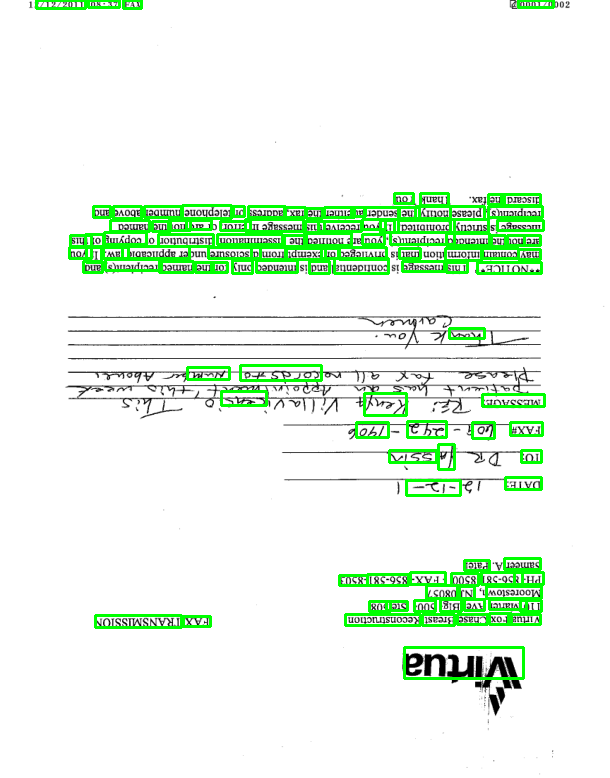 12/12/2011 08:37 FAX 0001/0002
Virtua
Virtua Fox Chase Breast Reconstruction FAX TRANSMISSION
Moorestown, NJ 08057
PH 856-581-8500 - FAX- 856-581-8503
Sameer A. Patel
DATE: 12-12-11
TO: DR
FAX#
MESSAGE: RE: Villavicensio This
patient has an Appointment, this week
Please fax all records to number Above.
Thank You.
Carmen
**NOTICE** This message is confidential and is intended only for the named recipient(s) and
may contain information that is privileged or exempt from disclosure under applicable law. If you
are not the intended recipient(s), you are notified the dissemination distribution or copying of this
message is strictly prohibited. If you receive this message in error or are not the named
recipient(s), please notify the sender at either the fax, address or telephone number above and
discard the fax. Thank You